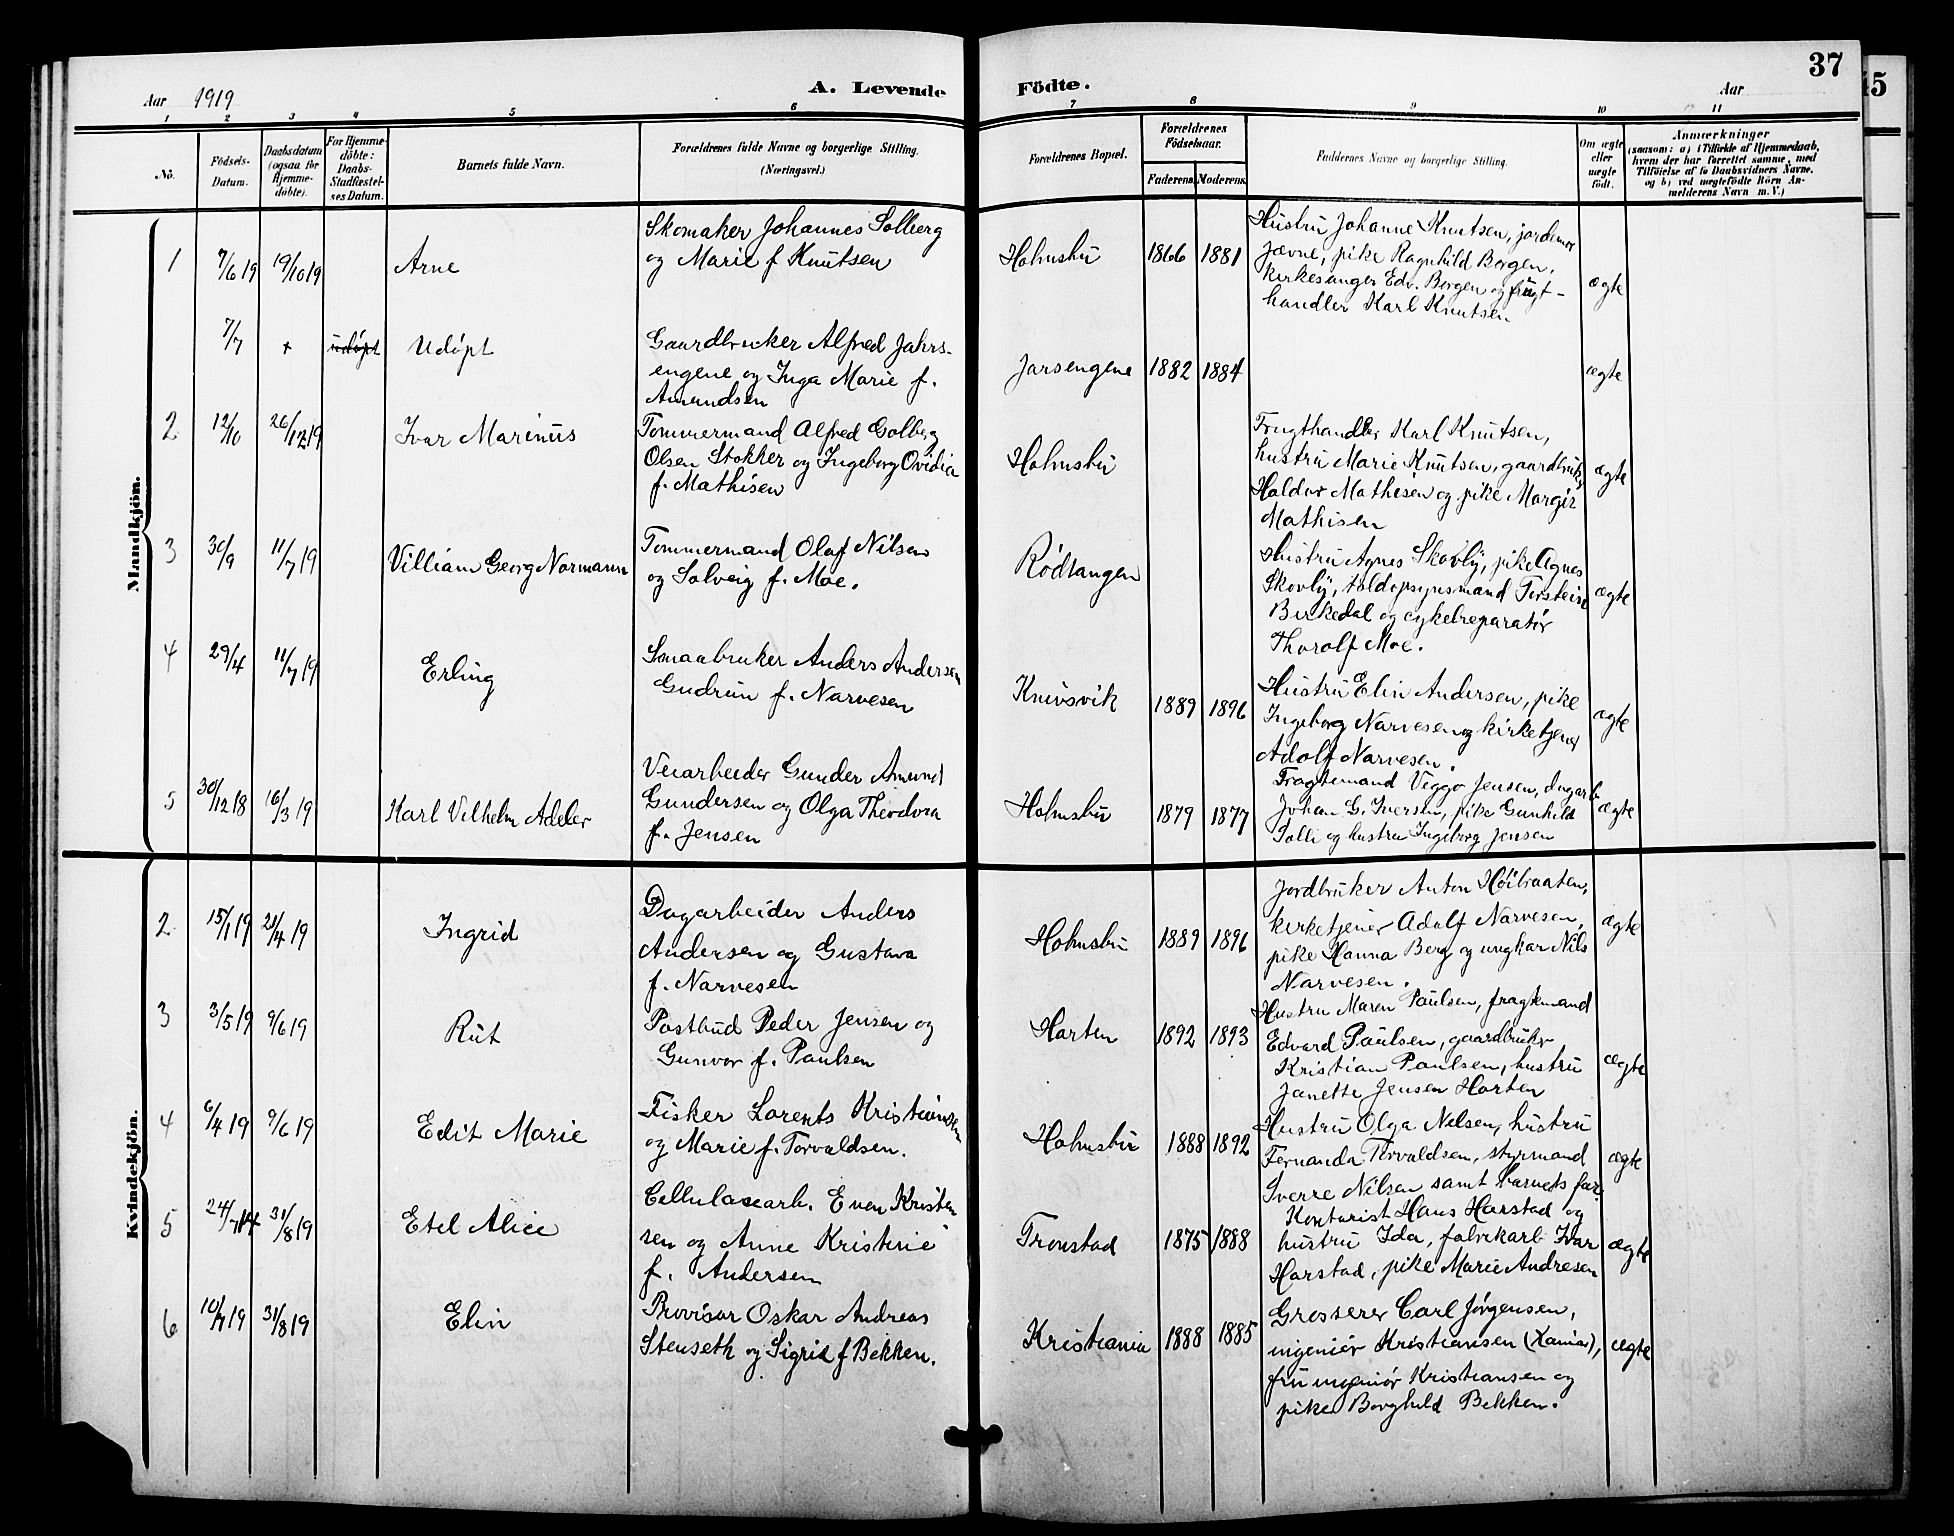 37
15
Aar 1919
A. Levende
Födte.
Aar
1 2 3 4 5 6 7 8 9 10 11
No.
Födsels-
Datum.
Daabsdatum
(ogsaa for
Hjemme-
döbte).
For Hjemme-
döbte:
Daabs-
Stadfæstel-
ses Datum.
Barnets fulde Navn.
Forældrenes fulde Navne og borgerlige Stilling.
(Næringsvei.)
Forældrenes Bopæl.
Forældrenes
Födselsaar.
Faderens. Moderens.
Faddernes Navne og borgerlige Stilling.
Om ægte
eller
uægte
födt.
Anmærkninger
(saasom: a) (Tilfælde af Hjemmedaab,
hvem der har forrettet samme, med
Tilføielse af to Daabsvidners Navne,
og b) ved uægtefödte Börn An-
melderens Navn m. V.)
Mandkjön.
1 7/6 19 19/10 19 Arne
Skomaker Johannes Solberg
og Marie f Knutsen
Holmsbu 1866 1881
Hustru Johanne Knutsen, jordemor
Jævne, pike Ragnhild Borgen,
kirkesanger Edv. Borgen og frugt-
handler Karl Knutsen
ægte
7/7 + udöpt Udöpt
Gaardbruker Alfred Jahrs-
engene og Inga Marie f.
Amundsen
Jarsengene 1882 1884
ægte
2 12/10 26/12 19 Ivar Marinus
Tømmermand Alfred Golberg
Olsen Stokker og Ingeborg Ovidia
f. Mathisen
Holmsbu
Frugthandler Karl Knutsen,
hustru Marie Knutsen, gaardbruker
Haldor Mathisen og pike Margit
Mathisen
ægte
3 30/9 11/7 19 Villiam Georg Normann
Tømmermand Olaf Nilsen
og Solveig f. Moe.
Rödtangen
Hustru Agnes Skovly, pike Agnes
Skovly, toldopsynsmand Torstein
Birkedal og cykelreparatör
Thorolf Moe.
ægte
4 29/4 11/7 19 Erling
Smaabruker Anders Andersen
Gudrun f. Narvesen
Knivsvik 1889 1896
Hustru Elin Andersen, pike
Ingeborg Narvesen og kirketjener
Adolf Narvesen.
ægte
5 30/12 18 16/3 19 Karl Vilhelm Adeler
Veiarbeider Gunder Amund
Gundersen og Olga Theodora
f. Jensen
Holmsbu 1879 1877
Fragtemand Viggo Jensen, dagarb.
Johan G. Iversen, pike Gunhild
Solli og hustru Ingeborg Jensen
ægte
Kvindekjön.
2 15/1 19 21/4 19 Ingrid
Dagarbeider Anders
Andersen og Gustava
f. Narvesen
Holmsbu 1889 1896
Jordbruker Anton Höibraaten,
kirketjener Adolf Narvesen,
pike Hanna Berg og ungkar Nils
Narvesen.
ægte
3 3/5 19 9/6 19 Rut
Postbud Peder Jensen og
Gunvor f. Paulsen
Horten 1892 1893
Hustru Maren Paulsen, fragtemand
Edvard Paulsen, gaardbruker
Kristian Paulsen, hustru
Janette Jensen Horten
ægte
4 6/4 19 9/6 19 Edit Marie
Fisker Lorents Kristiansen
og Marie f. Torvaldsen.
Holmsbu 1888 1892
Hustru Olga Nilsen, hustru
Fernanda Torvaldsen, styrmand
Sverre Nilsen samt barnets far.
ægte
5 24/7 14 31/8 19 Etel Alice
Cellulosearb. Even Kristen
sen og Anne Kristine
f. Andersen
Tronstad 1875 1888
Kontorist Hans Harstad og
hustru Ida, fabrikarb Ivar
Harstad, pike Marie Andresen
ægte
6 10/7 19 31/8 19 Elin
Provisor Oskar Andreas
Stenseth og Sigrid f Bekken.
Kristiania 1888 1885
Grosserer Carl Jörgensen,
ingeniör Kristiansen (Xania),
fru ingeniör Kristiansen og
pike Borghild Bekken.
ægte